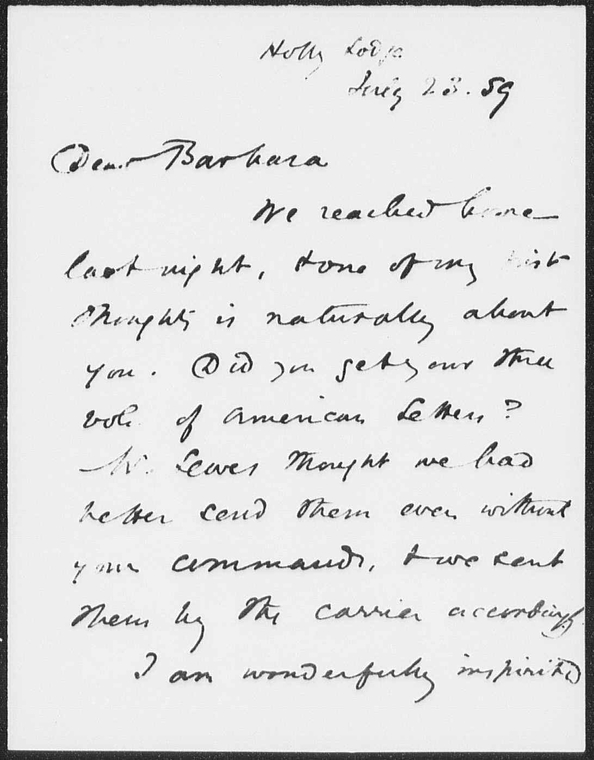 Holly Lodge
July 23. 59
Dear Barbara
We reached home
last night, & one of my first
thoughts is naturally about
you. Did you get your three
vols. of American Letters?
Mr. Lewes thought we had
better send them even without
your commands, & we sent
them by the carrier accordingly.
I am wonderfully inspirited